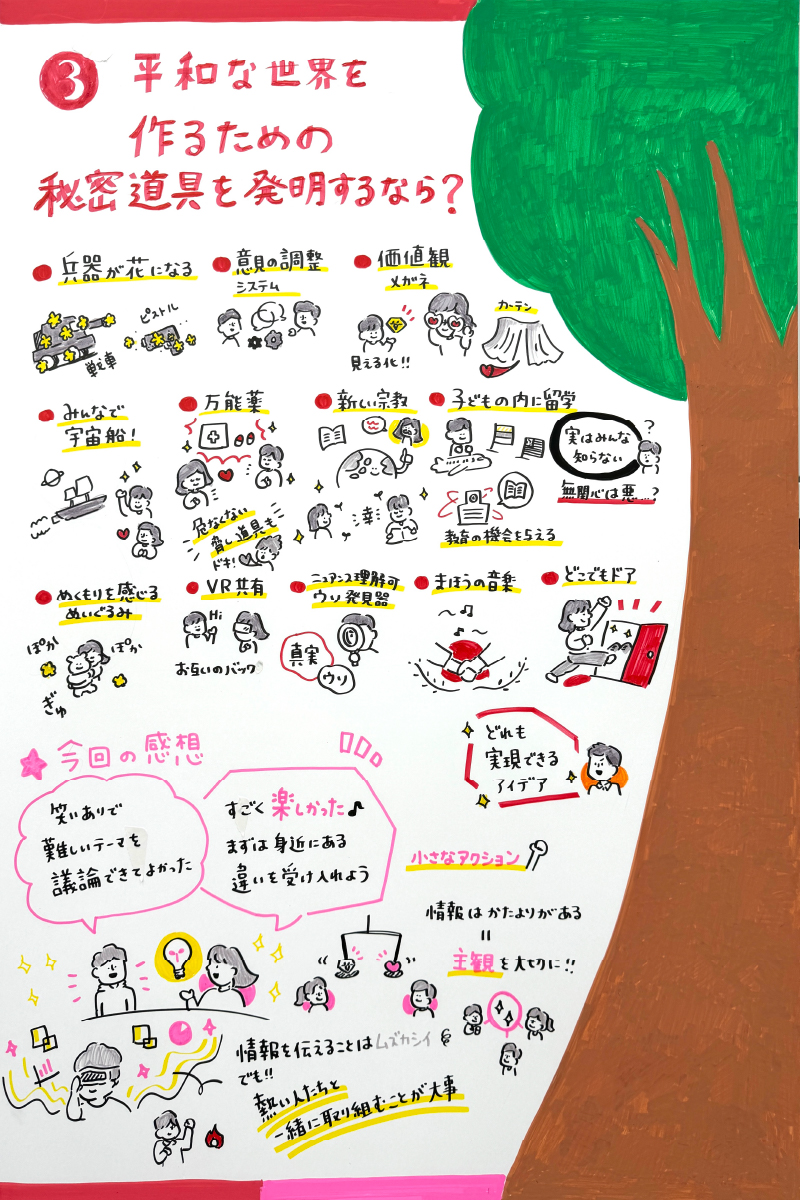 3 平和な世界を
作るための
秘密道具を発明するなら?
兵器が花になる
ピストル
戦車
意見の調整
システム
価値観
メガネ
見える化!!
カーテン
みんなで
宇宙船!
万能薬
危なくない
脅し道具も
ドキ!
新しい宗教
子どもの内に留学
実はみんな
知らない
?
無関心は悪…?
教育の機会を与える
ぬくもりを感じる
ぬいぐるみ
ぽか
ぽか
ぎゅ
VR共有
Hi
お互いのバック
ニュアンス理解可
ウソ発見器
真実
ウソ
まほうの音楽
どこでもドア
どれも
実現できる
アイデア
今回の感想
笑いありで
難しいテーマを
議論できてよかった
すごく楽しかった♪
まずは身近にある
違いを受け入れよう
小さなアクション
情報はかたよりがある
=
主観を大切に!!
情報を伝えることはムズカシイ
でも!!
熱い人たちと
一緒に取り組むことが大事